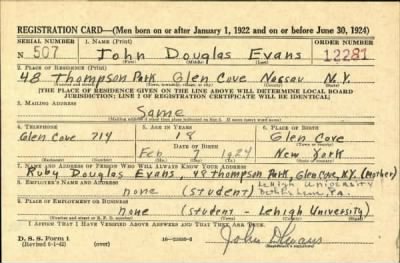 REGISTRATION CARD—(Men born on or after January 1, 1922 and on or before June 30, 1924)
SERIAL NUMBER 1. NAME (Print) ORDER NUMBER
N 507 John Douglas Evans 12281
(First) (Middle) (Last)
2. PLACE OF RESIDENCE (Print)
48 Thompson Park Glen Cove Nassau N.Y.
[THE PLACE OF RESIDENCE GIVEN ON THE LINE ABOVE WILL DETERMINE LOCAL BOARD
JURISDICTION; LINE 2 OF REGISTRATION CERTIFICATE WILL BE IDENTICAL]
3. MAILING ADDRESS
Same
4. TELEPHONE 5. AGE IN YEARS 6. PLACE OF BIRTH
Glen Cove 714 18 Glen Cove
DATE OF BIRTH
Feb 7 1924 New York
7. NAME AND ADDRESS OF PERSON WHO WILL ALWAYS KNOW YOUR ADDRESS
Ruby Douglas Evans, 48 Thompson Park, Glen Cove, N.Y. (Mother)
8. EMPLOYER'S NAME AND ADDRESS
none (student) Lehigh University
Bethlehem, PA.
9. PLACE OF EMPLOYMENT OR BUSINESS
none (student - Lehigh University)
I AFFIRM THAT I HAVE VERIFIED ABOVE ANSWERS AND THAT THEY ARE TRUE.
D. S. S. Form 1
(Revised 6-1-42)
John D Evans